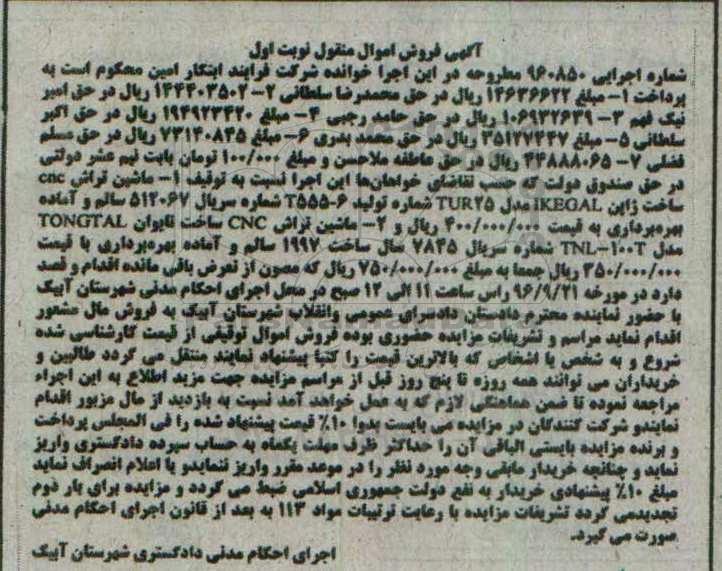 آگهی فروش اموال منقول نوبت اول
شماره اجرایی ۹۶۰۸۵۰ مطروحه در این اجرا خوانده شرکت فرایند ابتکار امین محکوم است به
پرداخت ۱- مبلغ ۱۴۶۳۶۶۲۲ ریال در حق محمدرضا سلطانی ۲- ۱۴۴۴۰۳۵۰۲ ریال در حق امیر
نیک فهم ۳- ۱۰۶۹۳۲۶۳۹ ریال در حق حامد رجبی ۴- مبلغ ۱۹۴۹۲۳۴۲۰ ریال در حق اکبر
سلطانی ۵- مبلغ ۳۵۱۲۷۴۴۷ ریال در حق محمد بدری ۶- مبلغ ۷۳۱۴۰۸۴۵ ریال در حق مسلم
فضلی ۷- ۴۴۸۸۸۰۶۵ ریال در حق عاطفه ملاحسن و مبلغ ۱۰۰/۰۰۰ تومان بابت نیم عشر دولتی
در حق صندوق دولت که حسب تقاضای خواهان‌ها این اجرا نسبت به توقیف ۱- ماشین تراش cnc
ساخت ژاپن IKEGAL مدل TUR۲۵ شماره تولید T۵۵۵-۶ شماره سریال ۵۱۲۰۶۷ سالم و آماده
بهره‌برداری به قیمت ۴۰۰/۰۰۰/۰۰۰ ریال و ۲- ماشین تراش CNC ساخت تایوان TONGTAL
مدل TNL-۱۰۰T شماره سریال ۷۸۴۵ سال ساخت ۱۹۹۷ سالم و آماده بهره‌برداری با قیمت
۳۵۰/۰۰۰/۰۰۰ ریال جمعا به مبلغ ۷۵۰/۰۰۰/۰۰۰ ریال که مصون از تعرض باقی مانده اقدام و قصد
دارد در مورخه ۹۶/۹/۲۱ راس ساعت ۱۱ الی ۱۲ صبح در محل اجرای احکام مدنی شهرستان آبیک
با حضور نماینده محترم دادستان دادسرای عمومی وانقلاب شهرستان آبیک به فروش مال مشعور
اقدام نماید مراسم و تشریفات مزایده حضوری بوده فروش اموال توقیفی از قیمت کارشناسی شده
شروع و به شخص یا اشخاص که بالاترین قیمت را کتبا پیشنهاد نمایند منتقل می گردد طالبین و
خریداران می توانند همه روزه تا پنج روز قبل از مراسم مزایده جهت مزید اطلاع به این اجراء
مراجعه نموده تا ضمن هماهنگی لازم که به عمل خواهد آمد نسبت به بازدید از مال مزبور اقدام
نمایندو شرکت کنندگان در مزایده می بایست بدوا ۱۰٪ قیمت پیشنهاد شده را فی المجلس پرداخت
و برنده مزایده بایستی الباقی آن را حداکثر ظرف مهلت یکماه به حساب سپرده دادگستری واریز
نماید و چنانچه خریدار مابقی وجه مورد نظر را در موعد مقرر واریز ننمایدو یا اعلام انصراف نماید
مبلغ ۱۰٪ پیشنهادی خریدار به نفع دولت جمهوری اسلامی ضبط می گردد و مزایده برای بار دوم
تجدیدمی گردد تشریفات مزایده با رعایت ترتیبات مواد ۱۱۳ به بعد از قانون اجرای احکام مدنی
صورت می گیرد.
اجرای احکام مدنی دادگستری شهرستان آبیک